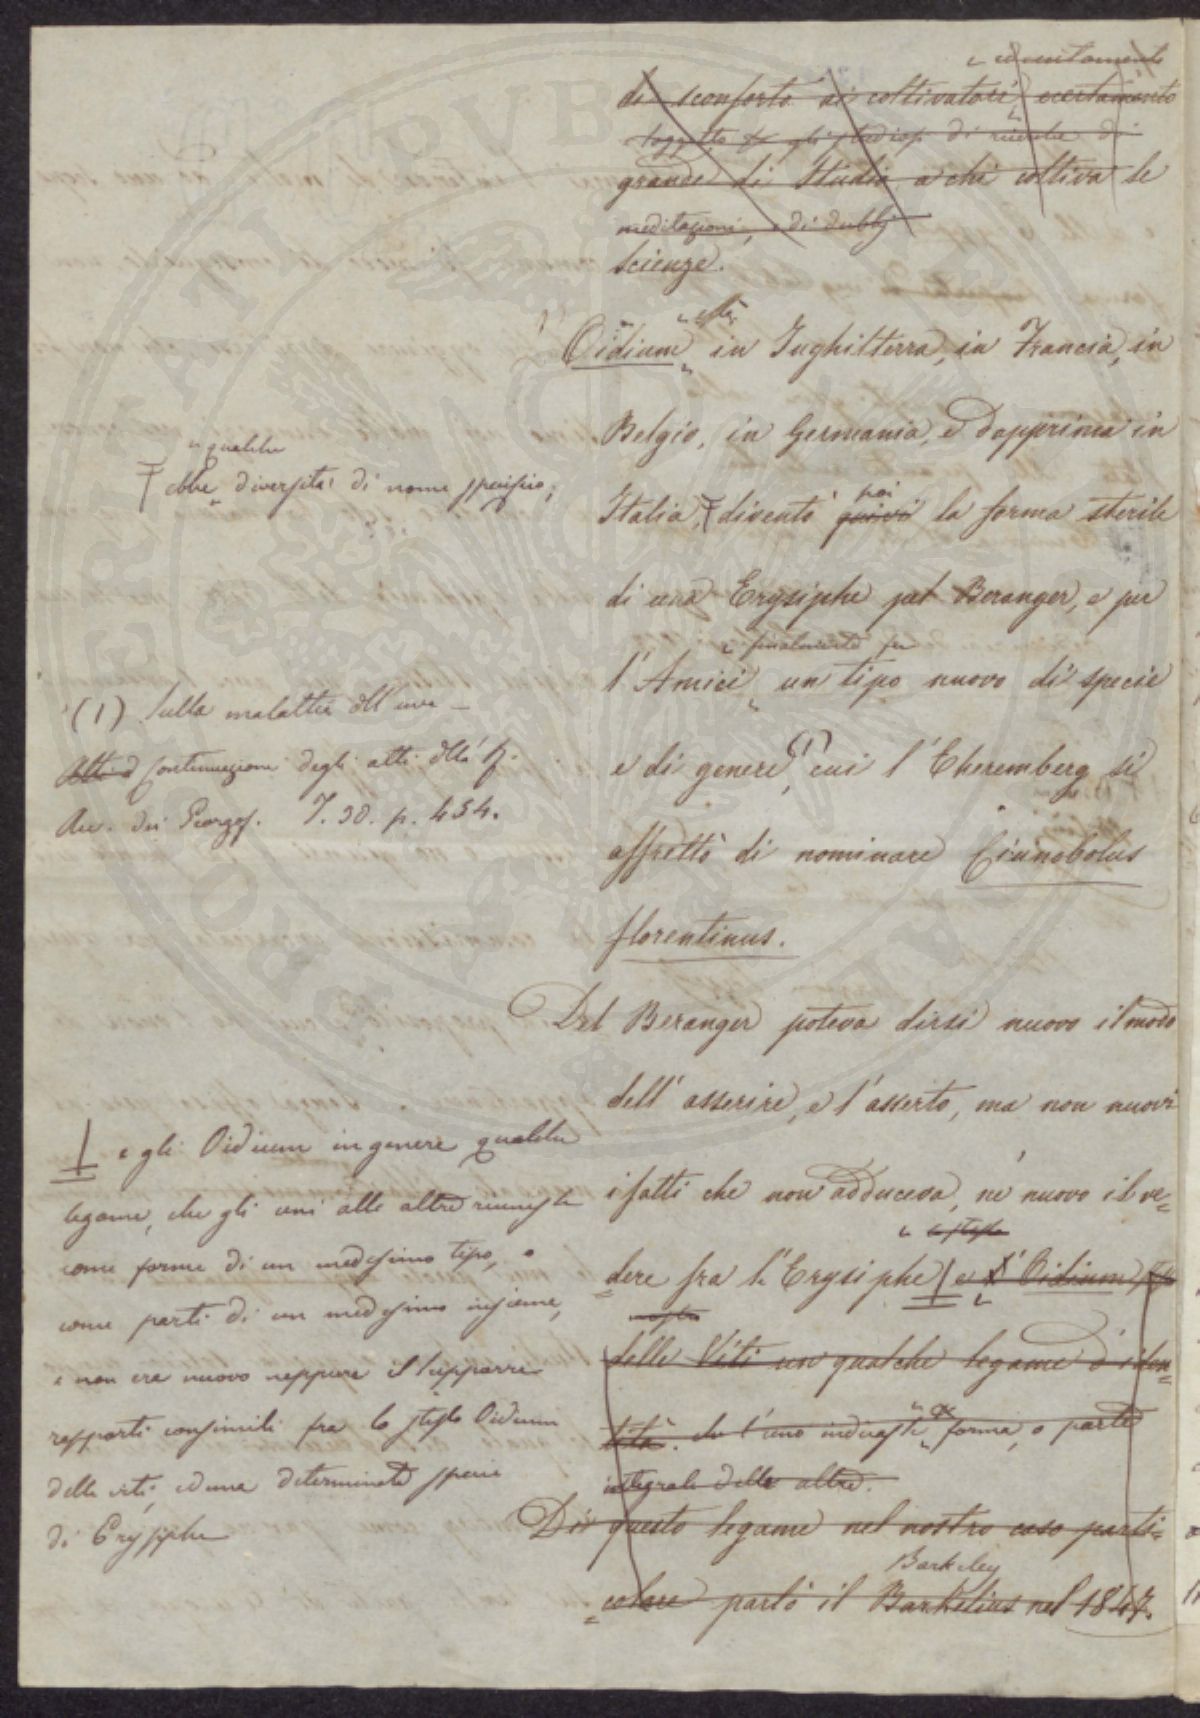 e concitamente
di sconforto ai coltivatori, e certamente
soggetto per gli studiosi di ricerche di
grande di Studio a chi coltiva le
meditazioni, e di dubbj
Scienze.
Oidium in Inghilterra, in Francia, in
Belgio, in Germania, e dapprima in
Italia, diventò quivi poi la forma sterile
di una Erysiphe pel Beranger, e per
e finalmente per
l'Amici un tipo nuovo di specie
e di genere, (1) cui l'Eheremberg si
affrettò di nominare Cinnobolus
florentinus.
Del Beranger poteva dirsi nuovo il modo
dell'asserire, e l'asserto, ma non nuovi
i fatti che non adduceva, nè nuovo il ve=
dere fra l'Erysiphe e l'Oidium
nostro
delle Viti un qualche legame d'iden=
tità. che l'uno indicasse forma, o parte
integrale delle altre.
Di questo legame nel nostro caso parti=
Barkeley
=colare parlò il Barkelius nel 1847.
qualche
ebbe diversità di nome specifico;
(1) Sulla malattia dell'uva –
Atti d Continuazione degli atti della R.
Acc. dei Georgof. T. 30. p. 454.
e gli Oidium in genere qualche
legame, che gli uni alle altre riunisse
come forme di un medesimo tipo, o
come parti di un medesimo insieme,
e non era nuovo neppure il supporre
rapporti consimili fra lo stesso Oidium
delle viti, ed una determinata specie
di Erysiphe